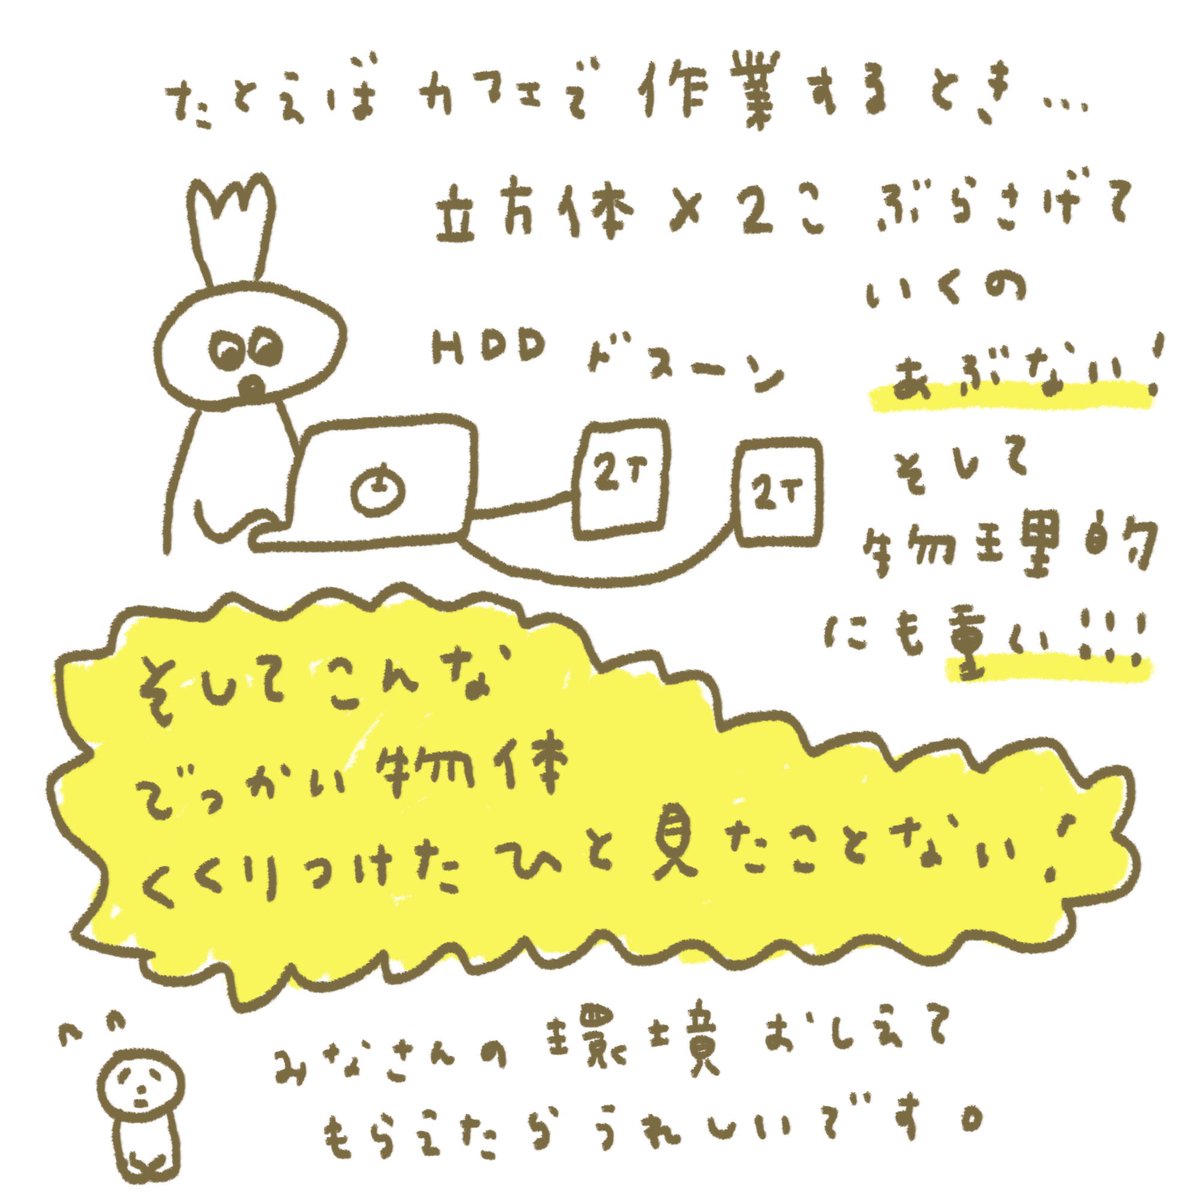 たとえばカフェで作業するとき…
立方体×2こ ぶらさげて
いくの
あぶない!
そして
物理的
にも重い!!!
HDD ドスーン
2T
2T
そしてこんな
でっかい物体
くくりつけたひと見たことない!
みなさんの環境おしえて
もらえたらうれしいです。